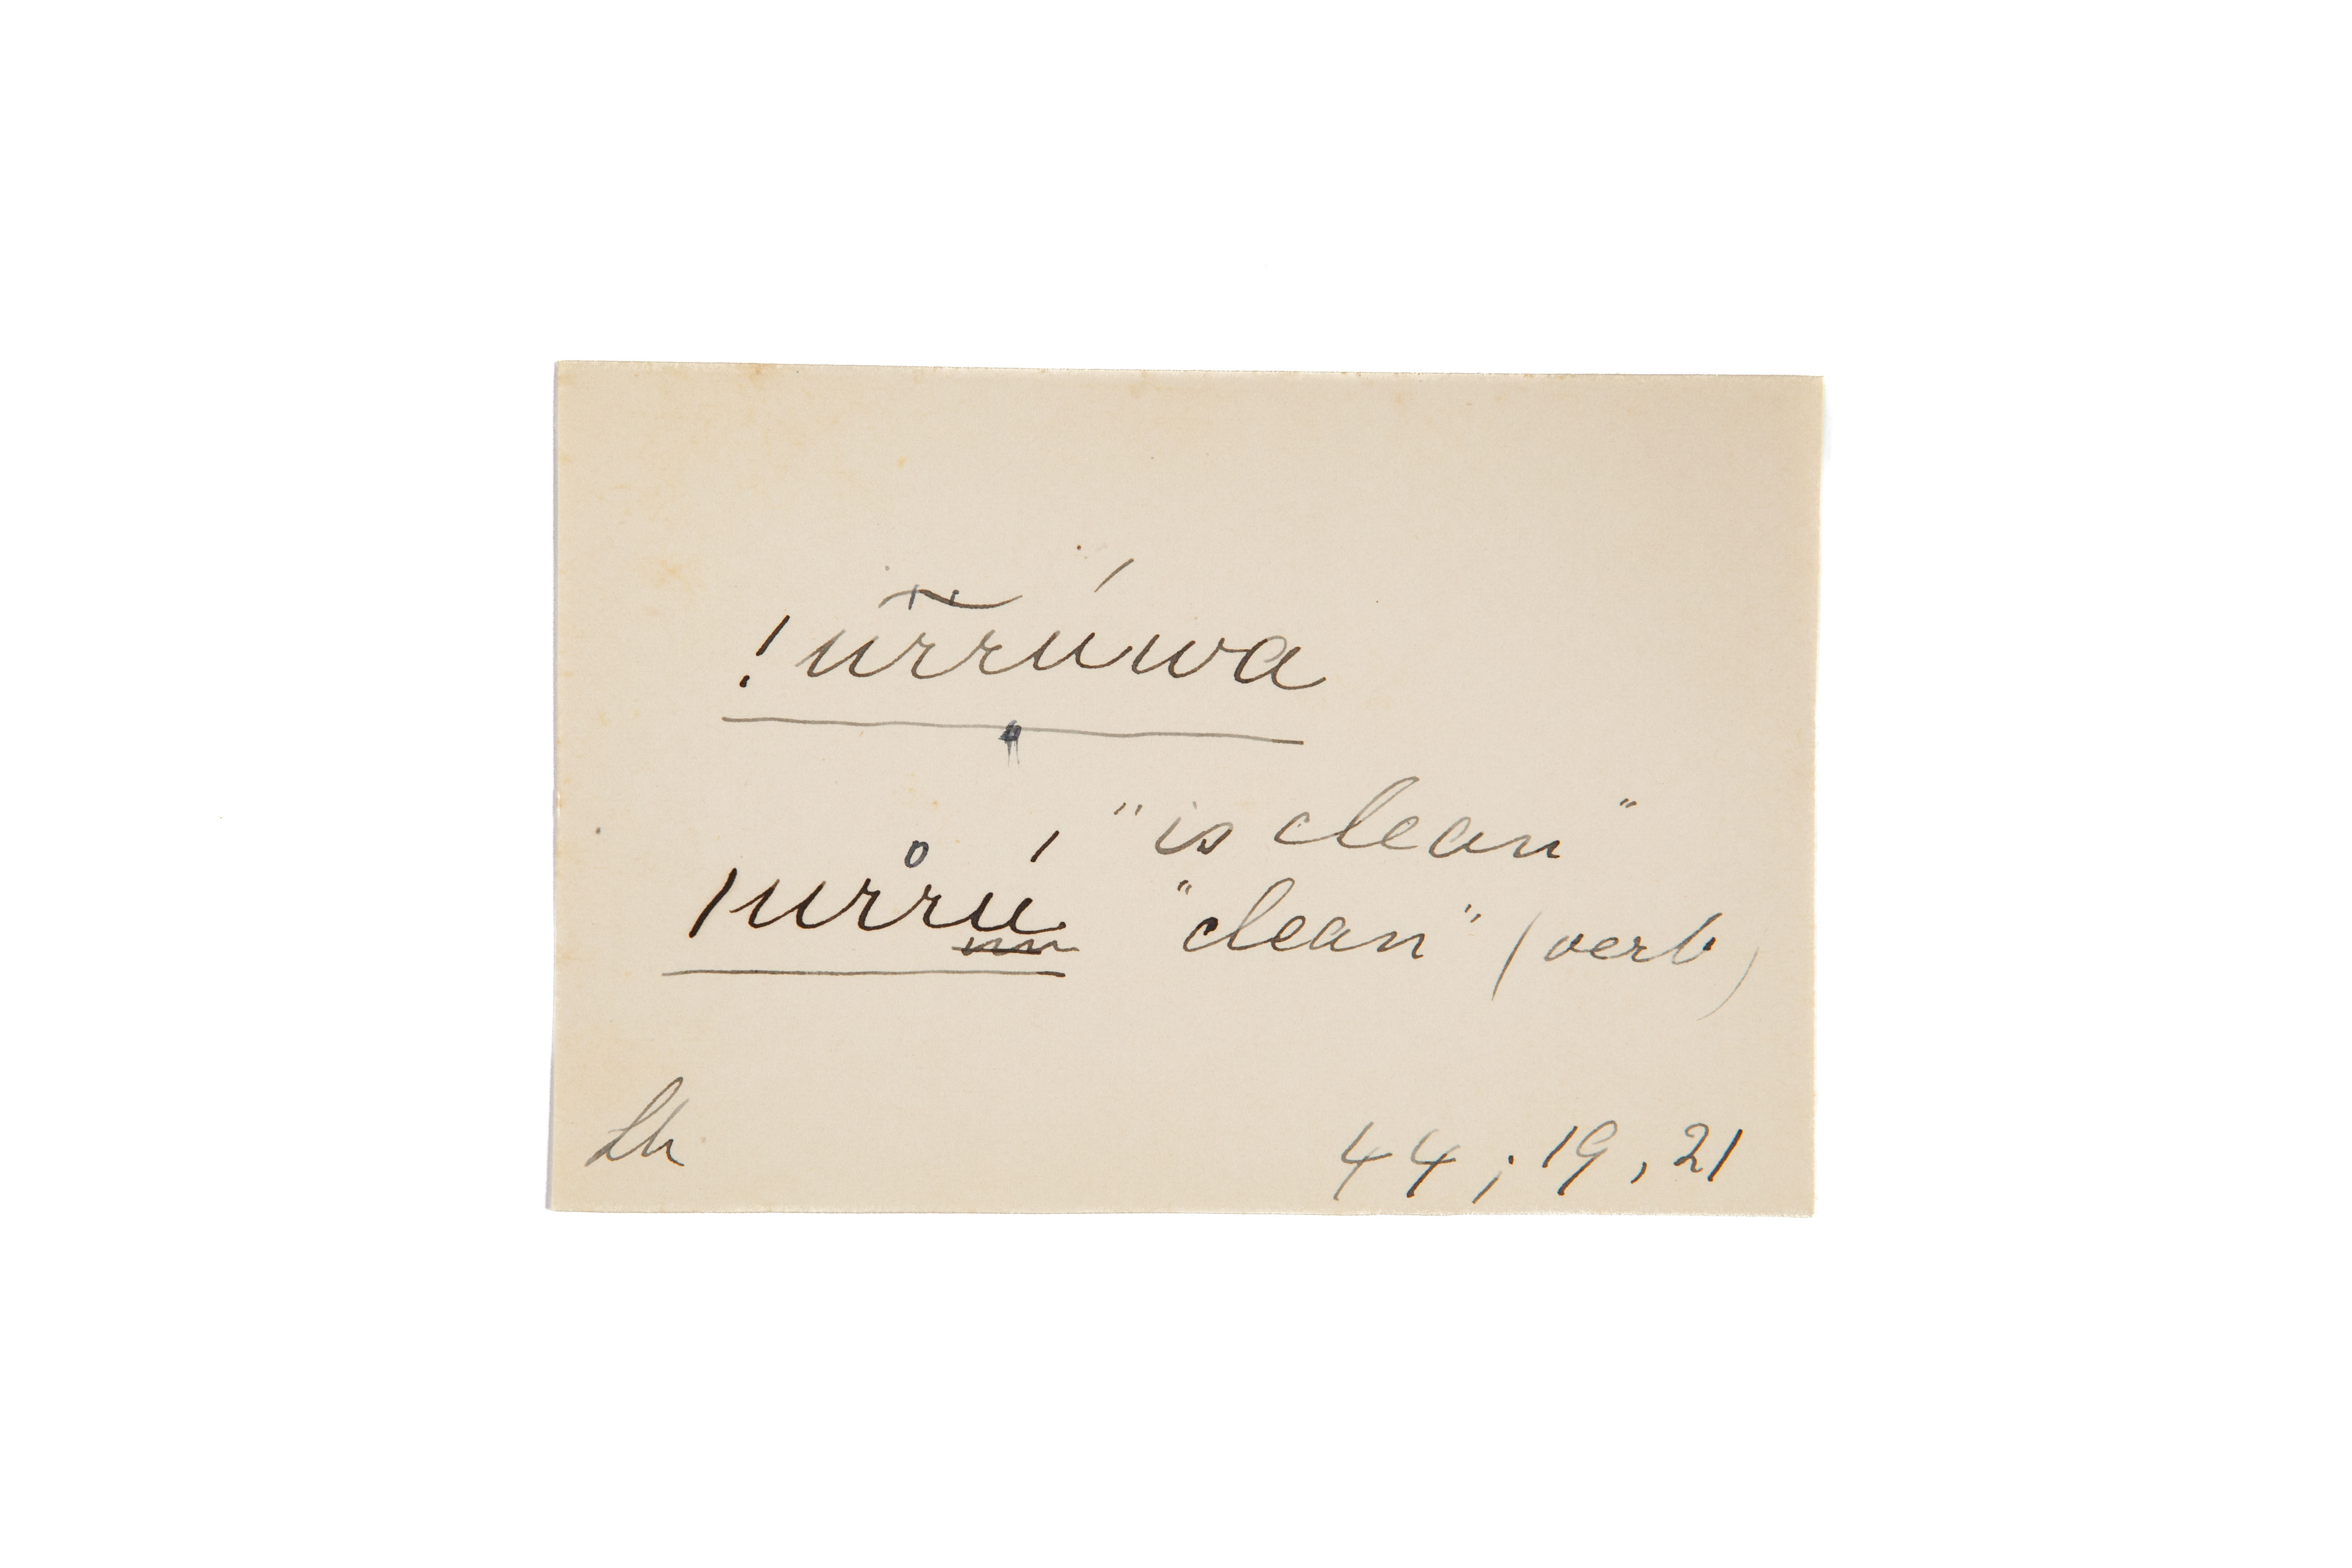 !urrúwa
"is clean"
ǀur̊rú "clean" (verb)
Lh 44; 19, 21